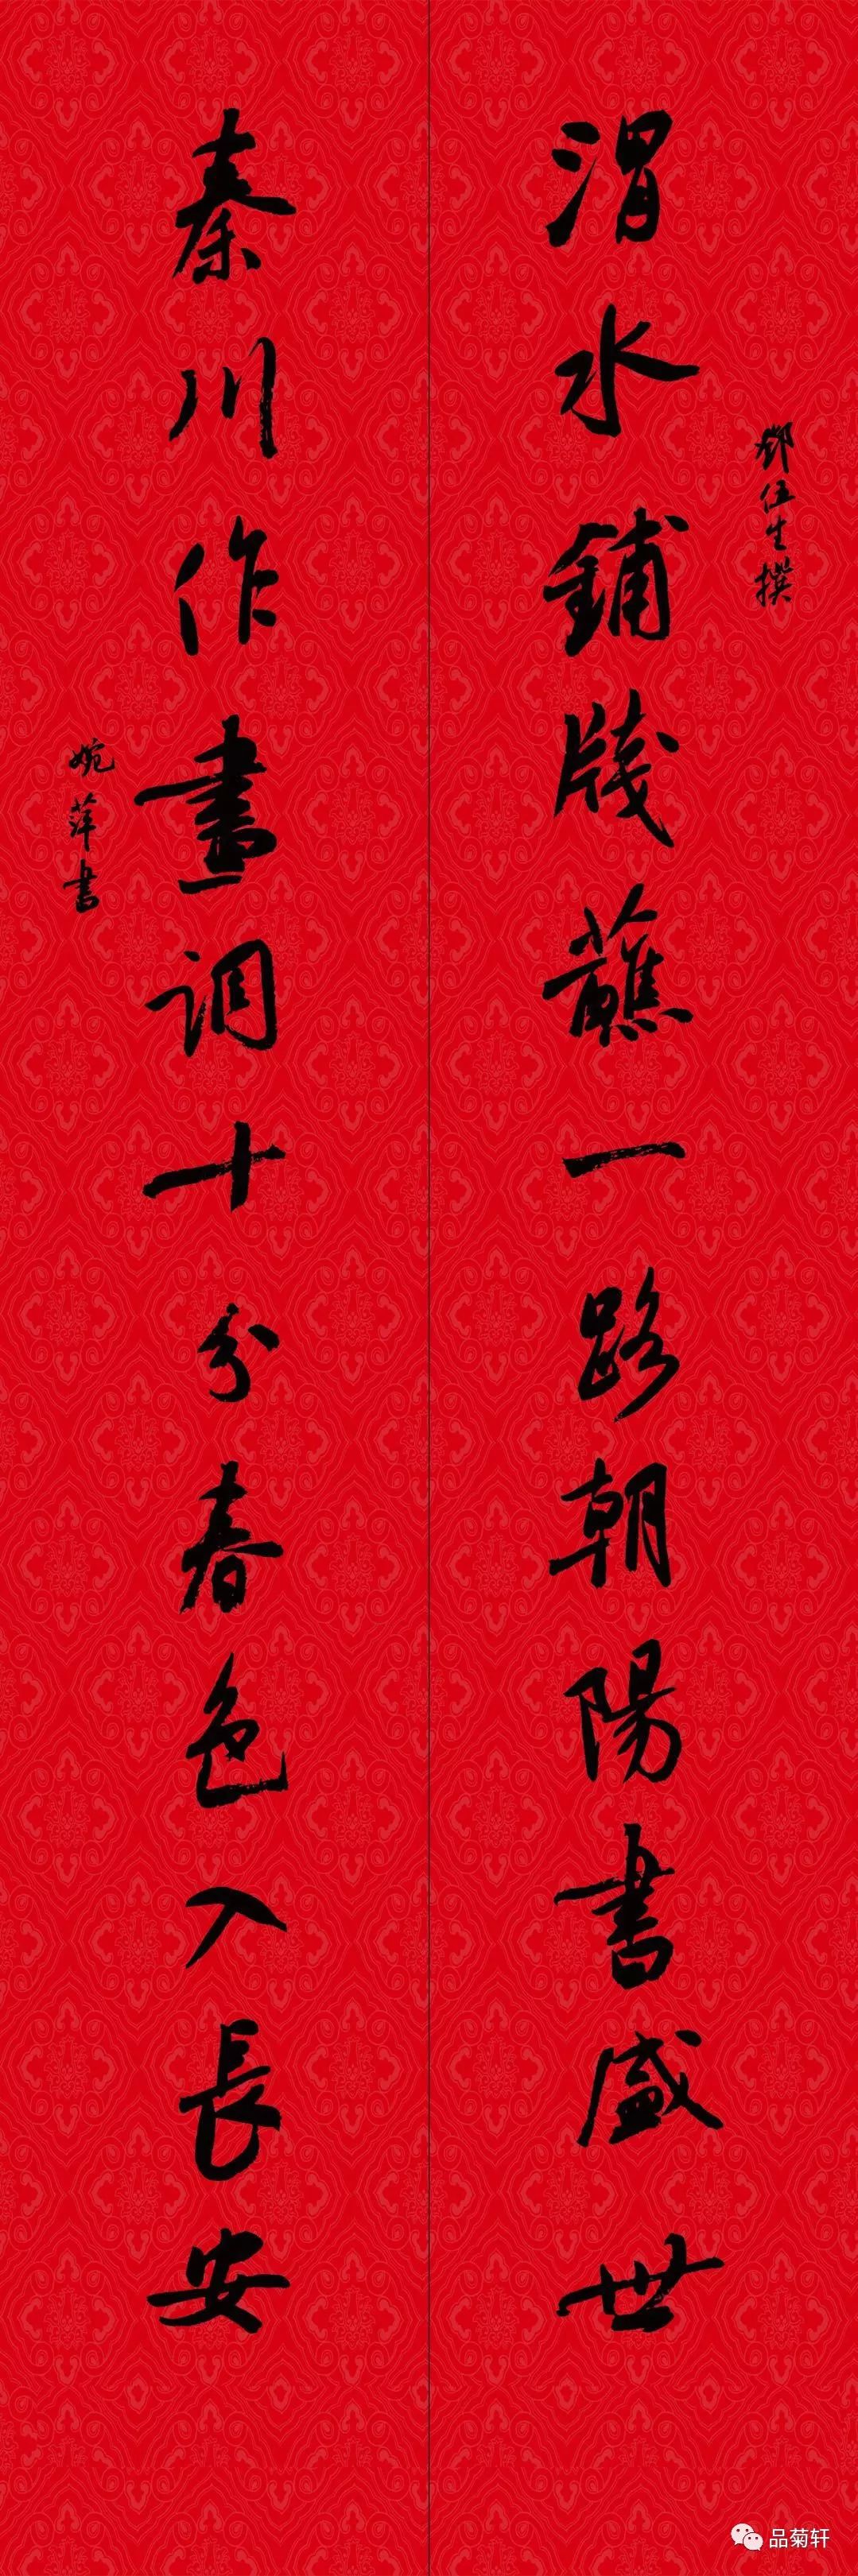 鄧伍生撰
渭水鋪牋蘸一路朝陽書盛世
秦川作畫調十分春色入長安
婉萍书
品菊轩